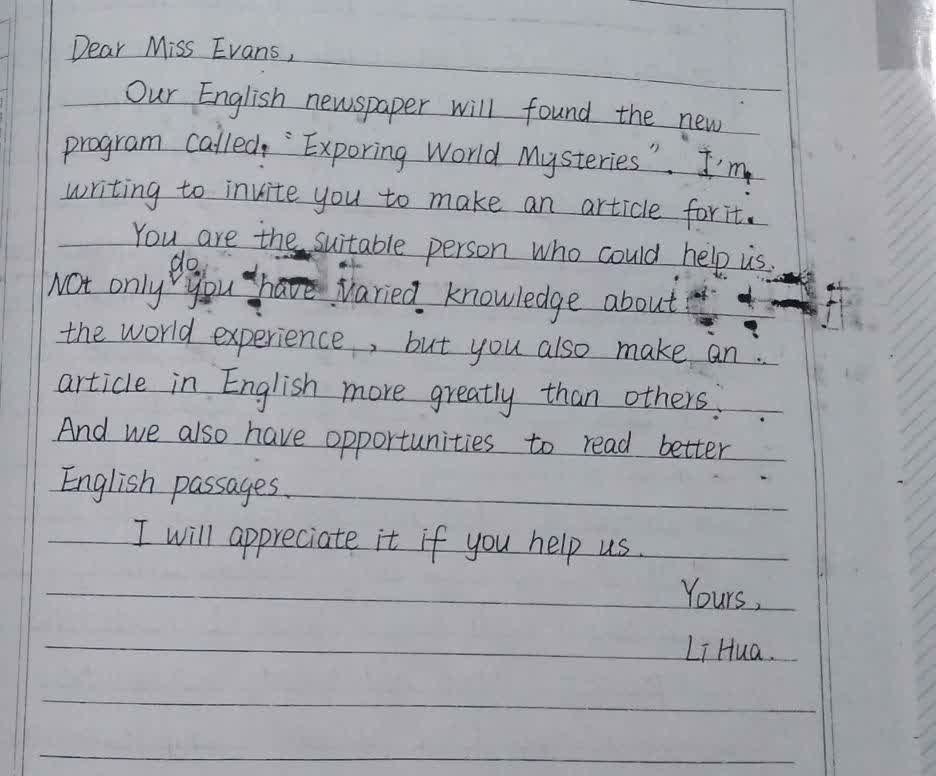 Dear Miss Evans,
Our English newspaper will found the new
program called: "Exporing World Mysteries". I'm
writing to invite you to make an article for it.
You are the suitable person who could help us.
Not only do you have varied knowledge about
the world experience, but you also make an
article in English more greatly than others.
And we also have opportunities to read better
English passages.
I will appreciate it if you help us.
Yours,
Li Hua.